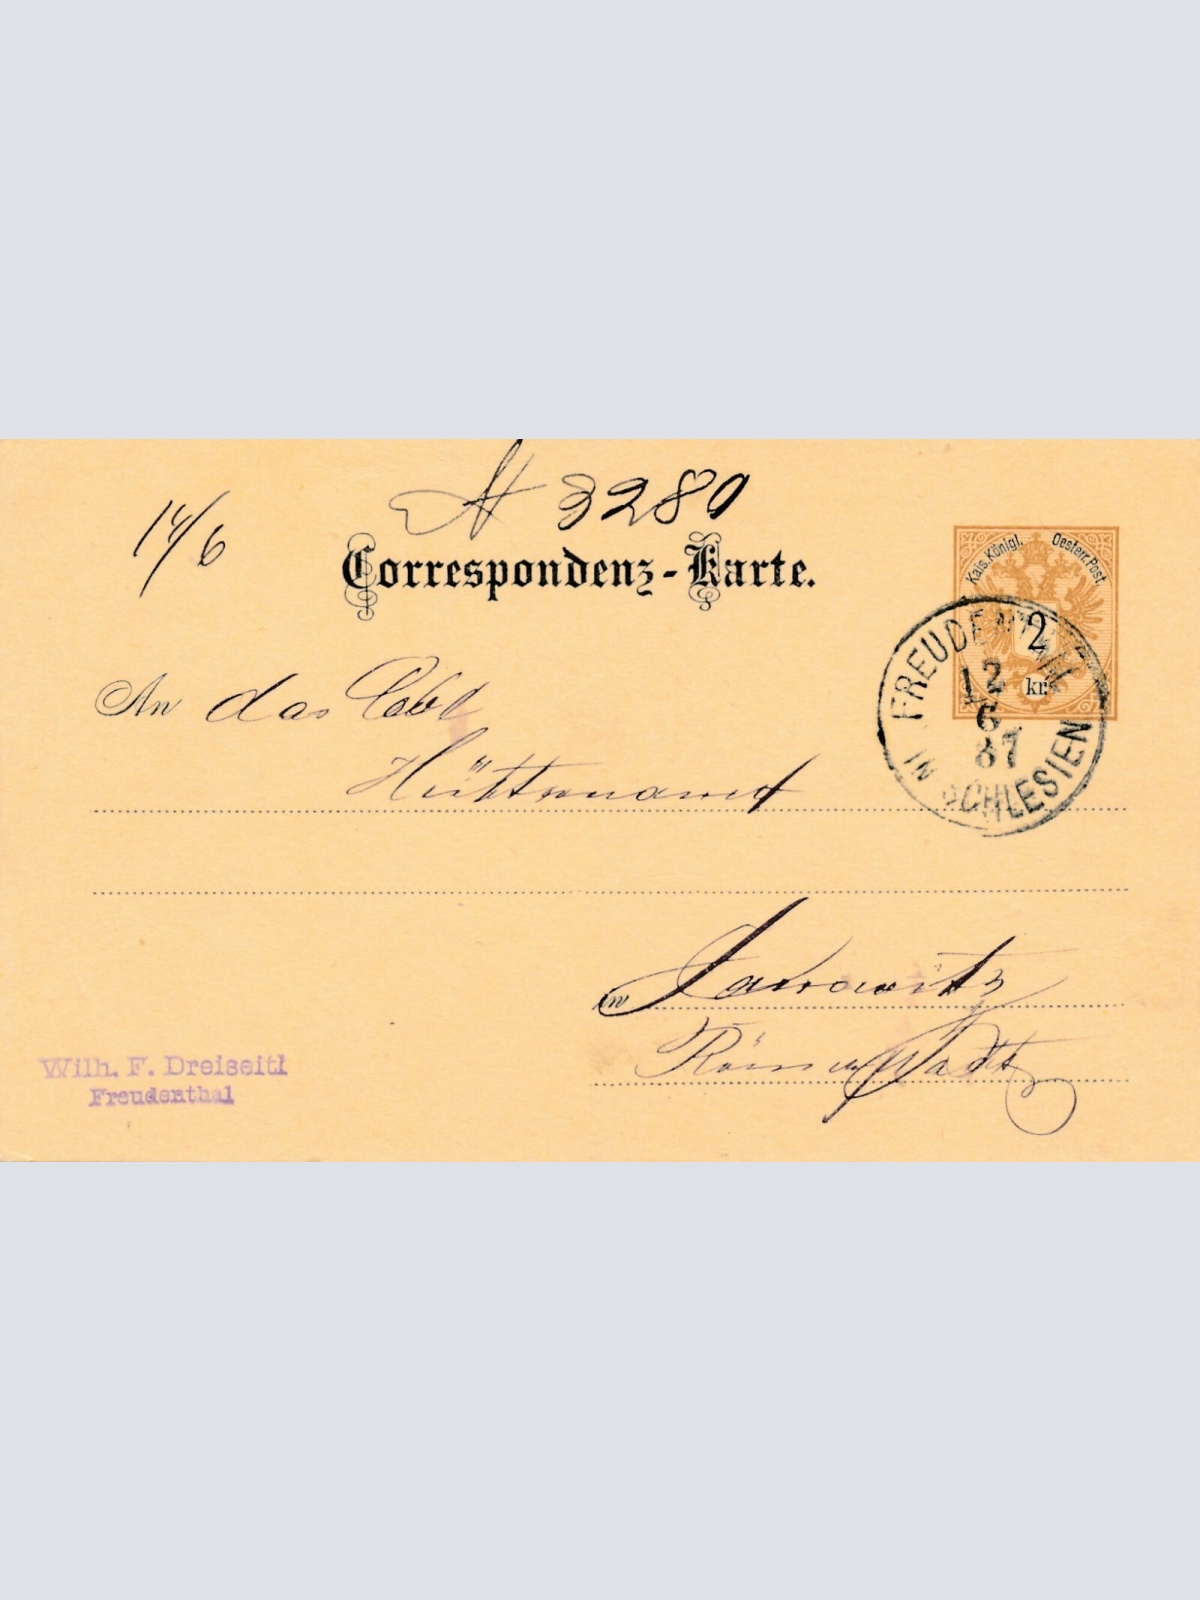 N 3280
14/6
Correspondenz-Karte.
Kais. Königl. Oesterr. Post.
2
kr.
FREUDENTHAL
12
6
87
IN SCHLESIEN
An das Löbl
Hüttenamt
in Janowitz
Römerstadt
Wilh. F. Dreiseitl
Freudenthal